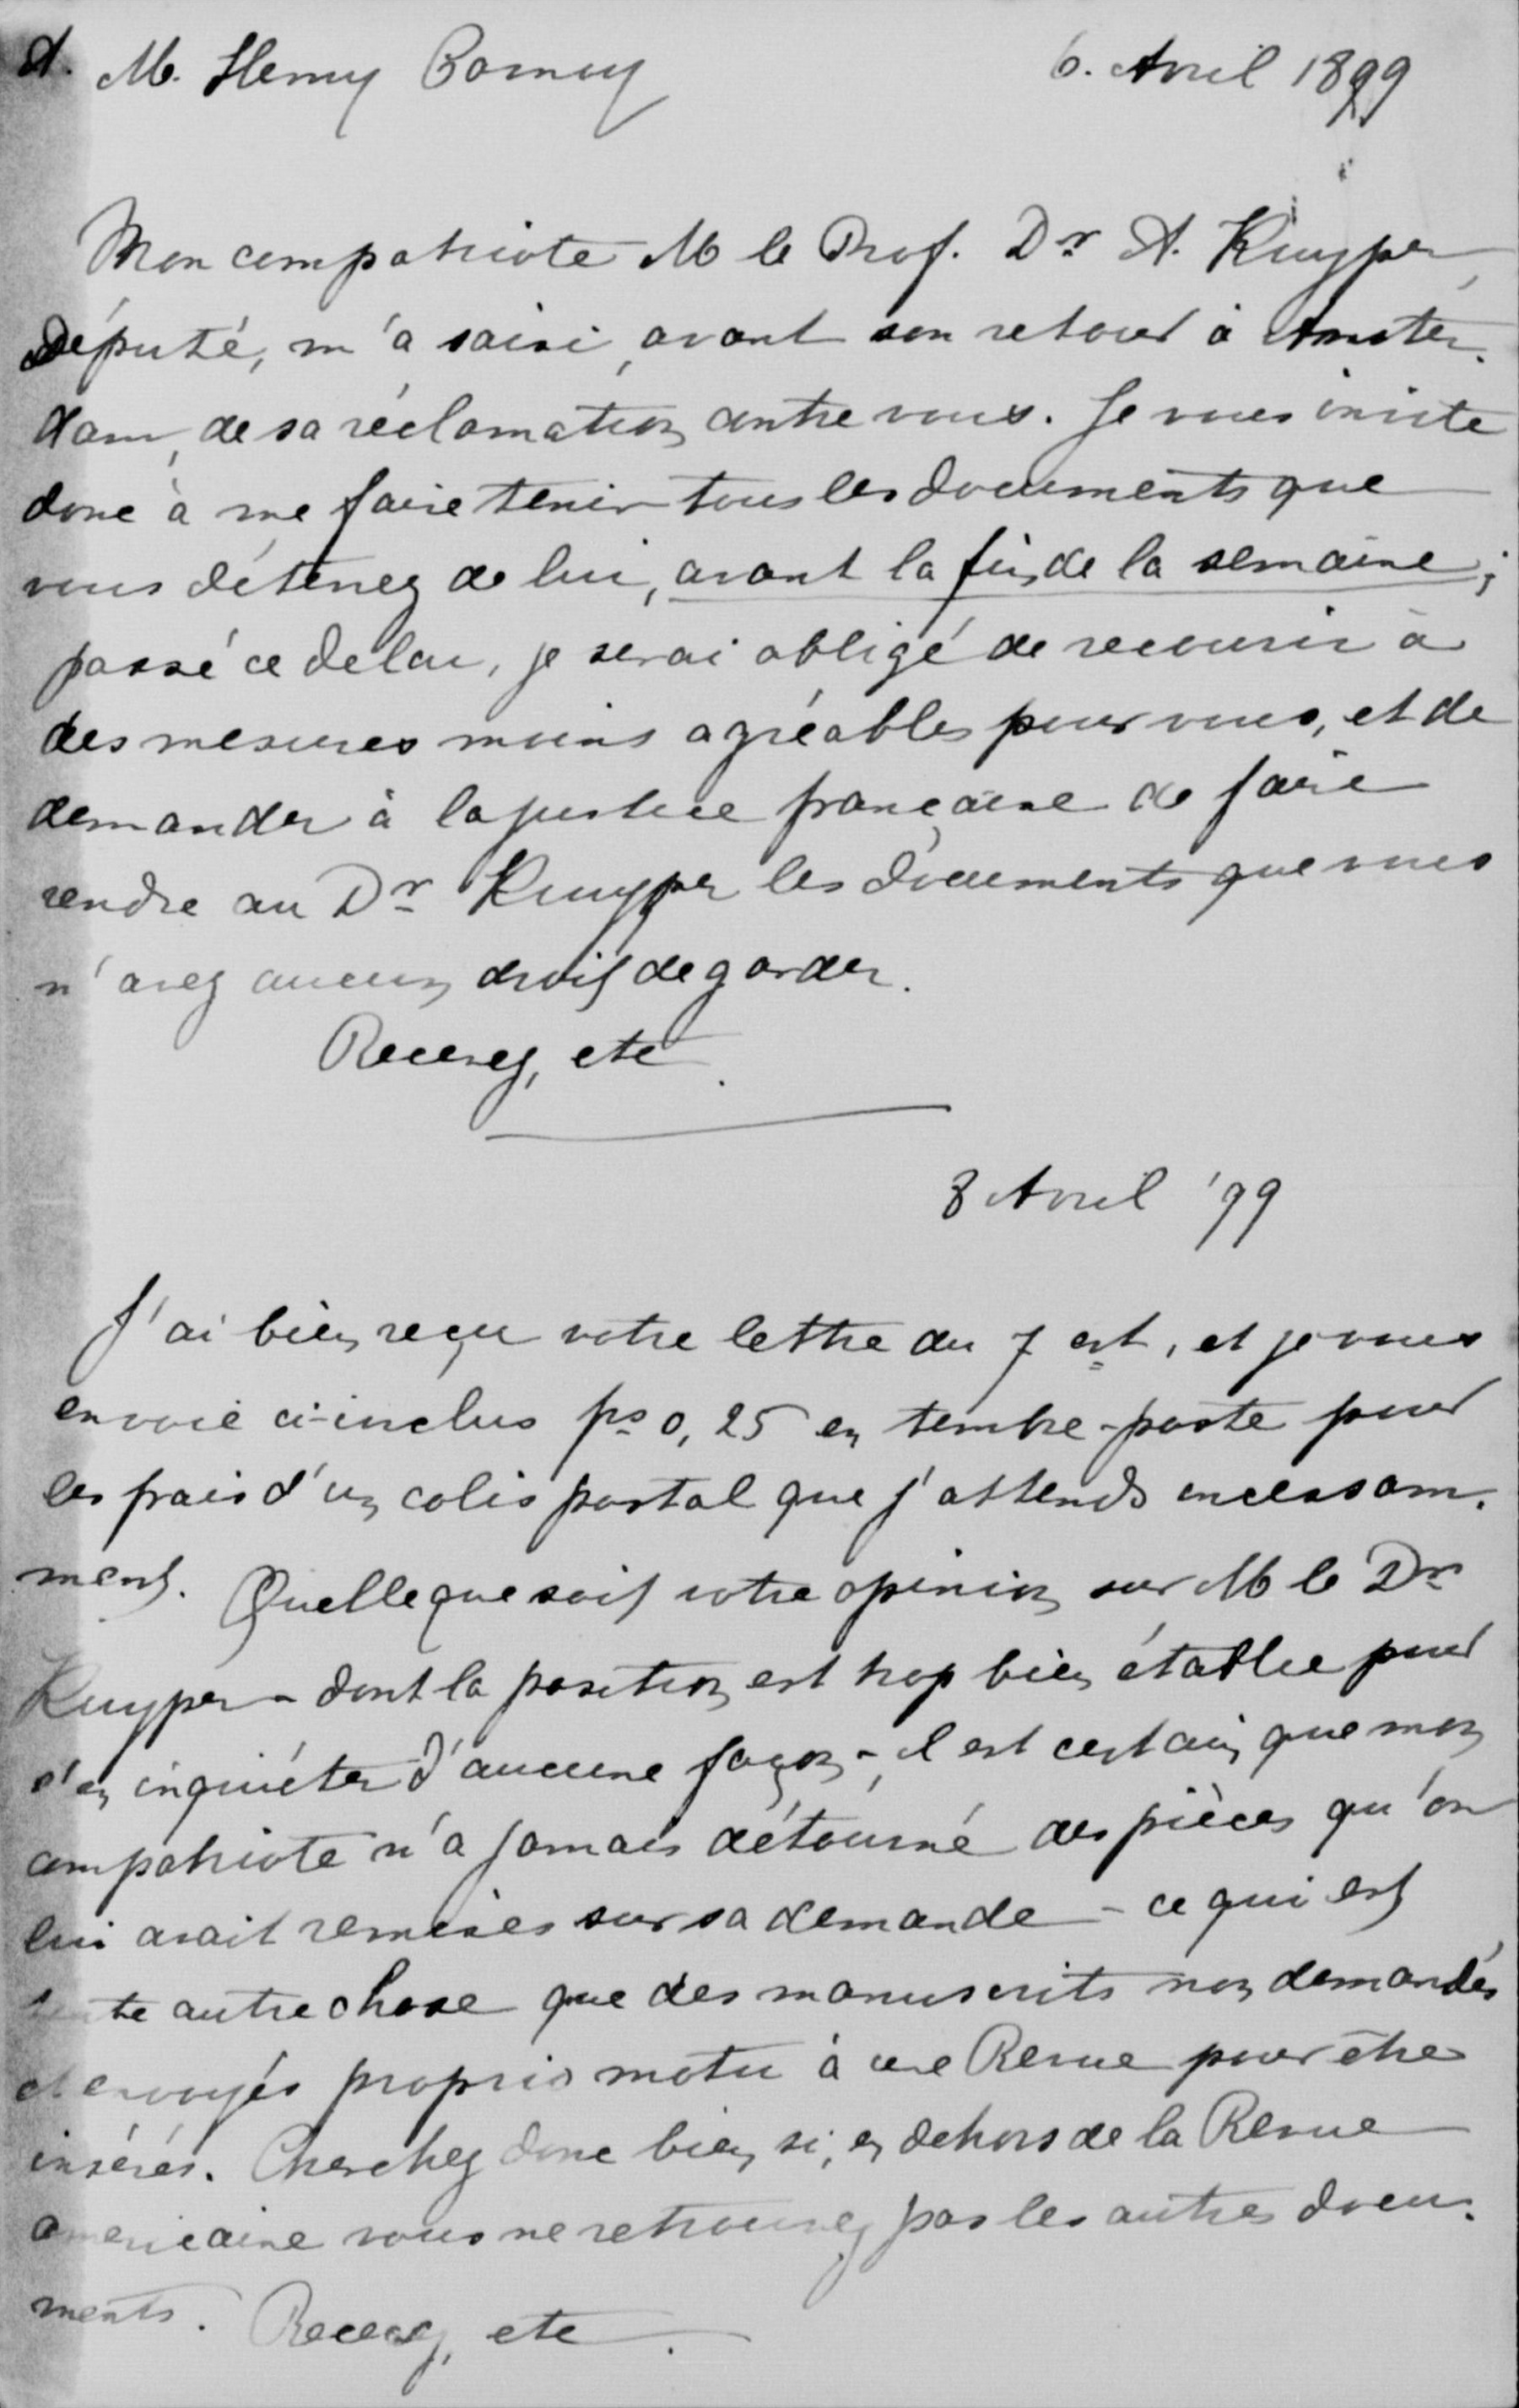 A. M. Henry 6. Avril 1899
Mon compatriote M le Prof. Dr A. Kuyper,
Député, m'a saisi, avant son retour à Amster-
dam, de sa réclamation contre vous. Je vous invite
donc à me faire tenir tous les documents que
vous détenez de lui, avant la fin de la semaine;
passé ce délai, je serai obligé de recourir à
des mesures moins agréables pour vous, et de
demander à la justice française de faire
rendre au Dr Kuyper les documents que vous
n'avez aucun droit de garder.
Recevez, etc.
8 Avril '99
J'ai bien reçu votre lettre du 7 ct, et je vous
envoie ci-inclus 0,25 en timbre-poste pour
les frais d'un colis postal que j'attends incessam-
ment. Quelle que soit votre opinion sur M le Dr
Kuyper - dont la position est trop bien établie pour
s'en inquiéter d'aucune façon -, il est certain que mon
compatriote n'a jamais détourné des pièces qu'on
lui avait remises sur sa demande - ce qui est
toute autre chose que des manuscrits non demandés
et envoyés proprio motu à une Revue pour être
insérés. Cherchez donc bien si, en dehors de la Revue
américaine vous ne retrouvez pas les autres docu-
ments. Recevez, etc.